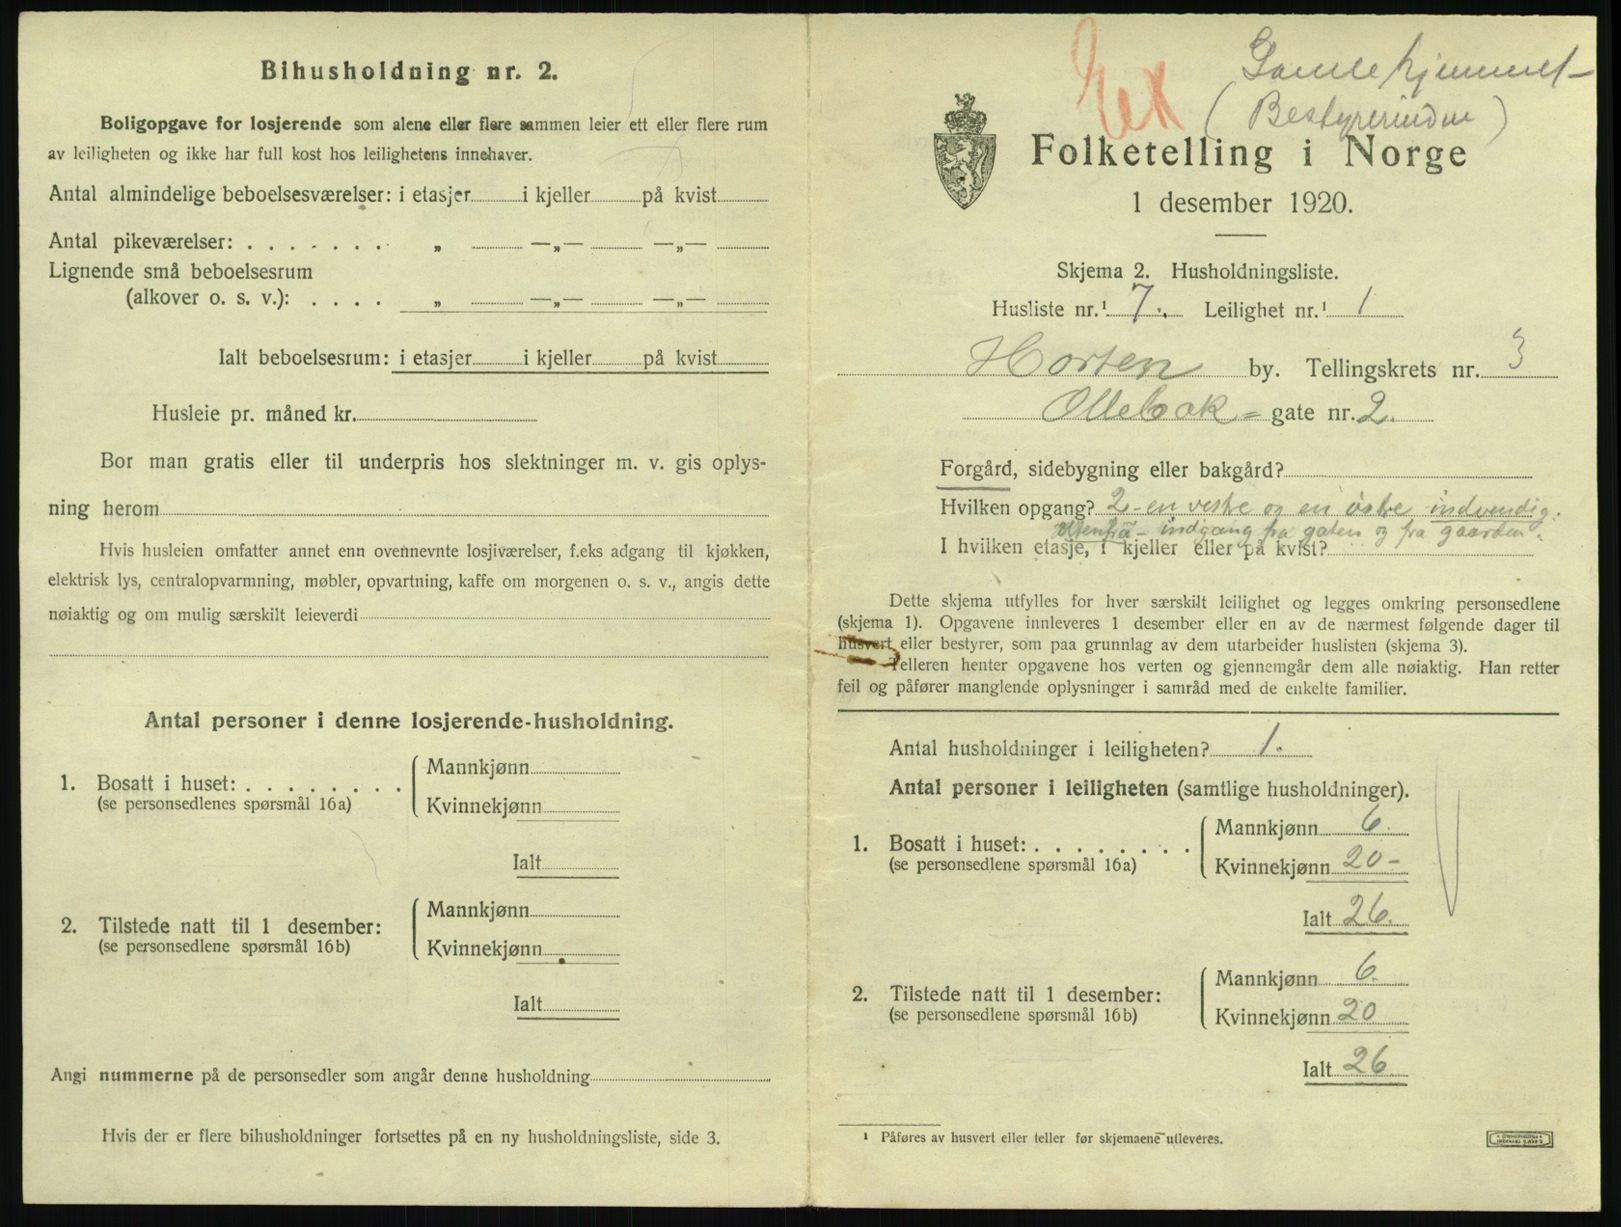 Bihusholdning nr. 2.
Boligopgave for losjerende som alene eller flere sammen leier ett eller flere rum
av leiligheten og ikke har full kost hos leilighetens innehaver.
Antal almindelige beboelsesværelser: i etasjer i kjeller på kvist
Antal pikeværelser: . . . . . . . „ —„— —„—
Lignende små beboelsesrum
(alkover o. s. v.): . . . . „ —„— —„—
Ialt beboelsesrum: i etasjer i kjeller på kvist
Husleie pr. måned kr.
Bor man gratis eller til underpris hos slektninger m. v. gis oplys-
ning herom
Hvis husleien omfatter annet enn ovennevnte losjiværelser, f.eks adgang til kjøkken,
elektrisk lys, centralopvarmning, møbler, opvartning, kaffe om morgenen o. s. v., angis dette
nøiaktig og om mulig særskilt leieverdi
Antal personer i denne losjerende-husholdning.
1. Bosatt i huset: . . . . . . . .
(se personsedlenes spørsmål 16a)
Mannkjønn
Kvinnekjønn
Ialt
2. Tilstede natt til 1 desember:
(se personsedlene spørsmål 16b)
Mannkjønn
Kvinnekjønn
Ialt
Angi nummerne på de personsedler som angår denne husholdning
Hvis der er flere bihusholdninger fortsettes på en ny husholdningsliste, side 3.
Gamlehjemmet
(Bestyrerinden)
Folketelling i Norge
1 desember 1920.
Skjema 2. Husholdningsliste.
Husliste nr.¹ 7. Leilighet nr.¹ 1
Horten by. Tellingskrets nr. 3
Ollebak- gate nr. 2.
Forgård, sidebygning eller bakgård?
Hvilken opgang? 2 - en vestre og en østre indvendig.
Utenfra - indgang fra gaten og fra gaarden.
I hvilken etasje, i kjeller eller på kvist?
Dette skjema utfylles for hver særskilt leilighet og legges omkring personsedlene
(skjema 1). Opgavene innleveres 1 desember eller en av de nærmest følgende dager til
husvert eller bestyrer, som paa grunnlag av dem utarbeider huslisten (skjema 3).
Telleren henter opgavene hos verten og gjennemgår dem alle nøiaktig. Han retter
feil og påfører manglende oplysninger i samråd med de enkelte familier.
Antal husholdninger i leiligheten? 1.
Antal personer i leiligheten (samtlige husholdninger).
1. Bosatt i huset: . . . . . . . .
(se personsedlene spørsmål 16a)
Mannkjønn 6.
Kvinnekjønn 20-
Ialt 26.
2. Tilstede natt til 1 desember:
(se personsedlene spørsmål 16b)
Mannkjønn 6.
Kvinnekjønn 20
Ialt 26
¹ Påføres av husvert eller teller før skjemaene utleveres.